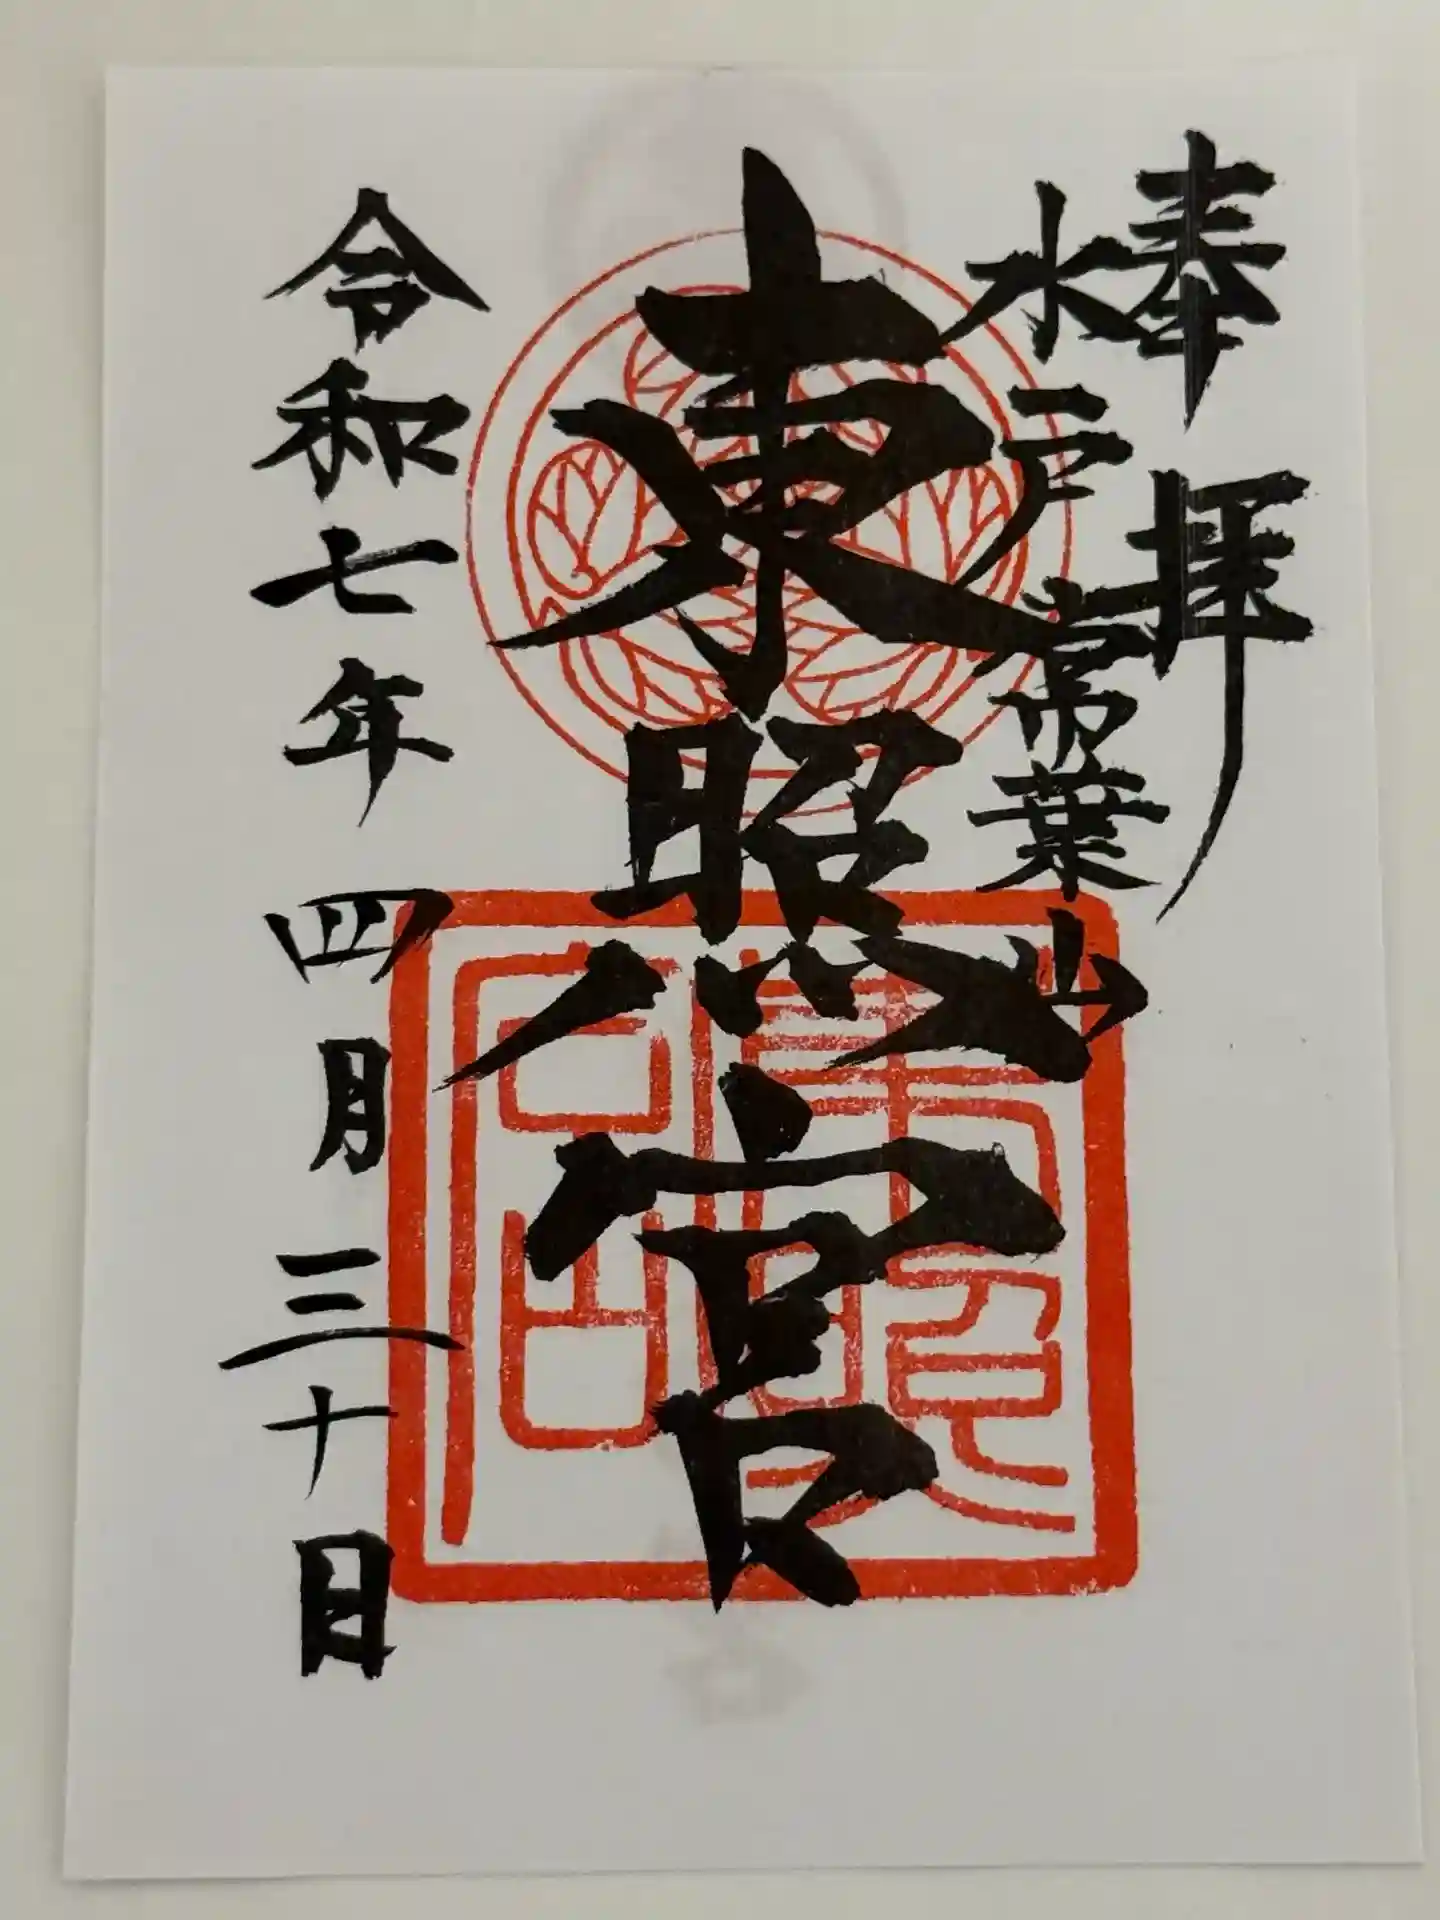 奉拝
水戸常葉山
東照宮
令和七年四月三十日